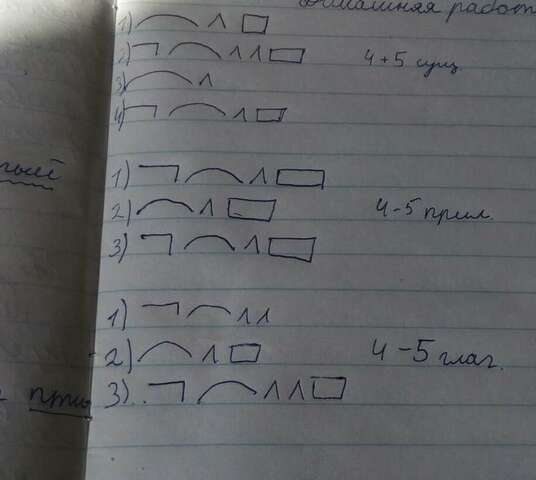 Домашняя работ
1)
2) 4+5 сущ
3)
4)
1)
2) 4-5 прил.
3)
1)
2) 4-5 глаг.
3)